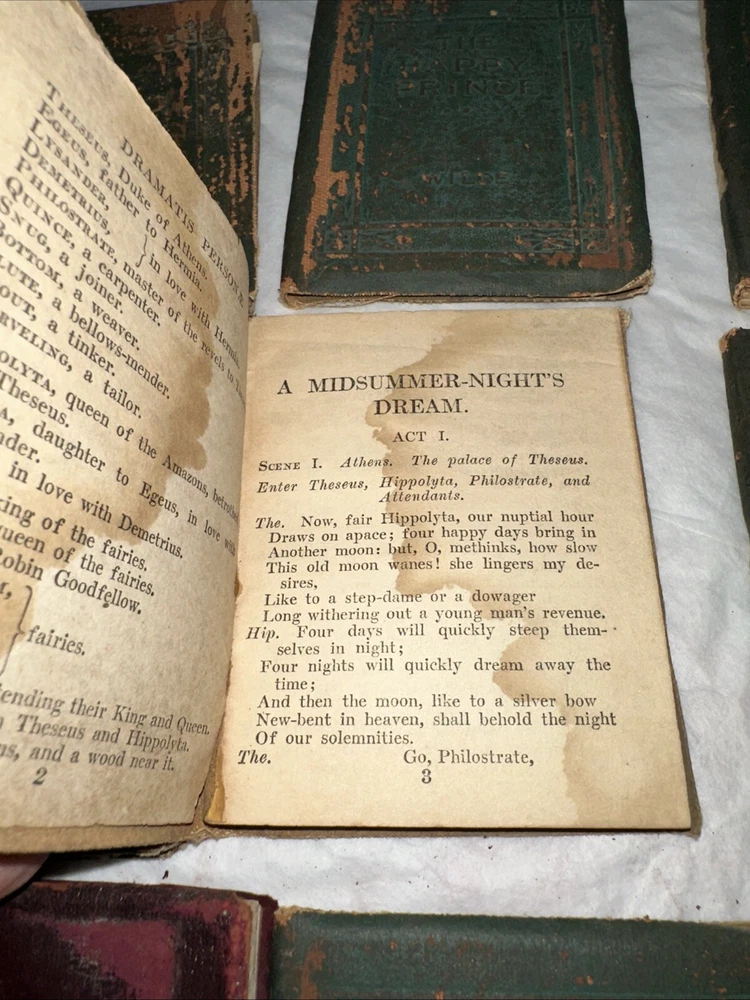 THE
HAPPY
PRINCE
WILDE
DRAMATIS PERSONÆ
THESEUS, Duke of Athens.
EGEUS, father to Hermia.
LYSANDER,
DEMETRIUS, } in love with Hermia.
PHILOSTRATE, master of the revels to
QUINCE, a carpenter.
SNUG, a joiner.
BOTTOM, a weaver.
LUTE, a bellows-mender.
OUT, a tinker.
RVELING, a tailor.
OLYTA, queen of the Amazons, betrothed
Theseus.
A, daughter to Egeus, in love with
nder.
in love with Demetrius.
ing of the fairies.
queen of the fairies.
Robin Goodfellow.
} fairies.
tending their King and Queen.
Theseus and Hippolyta.
ns, and a wood near it.
2
A MIDSUMMER-NIGHT'S
DREAM.
ACT I.
SCENE I. Athens. The palace of Theseus.
Enter Theseus, Hippolyta, Philostrate, and
Attendants.
The. Now, fair Hippolyta, our nuptial hour
Draws on apace; four happy days bring in
Another moon: but, O, methinks, how slow
This old moon wanes! she lingers my de-
sires,
Like to a step-dame or a dowager
Long withering out a young man's revenue.
Hip. Four days will quickly steep them-
selves in night;
Four nights will quickly dream away the
time;
And then the moon, like to a silver bow
New-bent in heaven, shall behold the night
Of our solemnities.
The. Go, Philostrate,
3